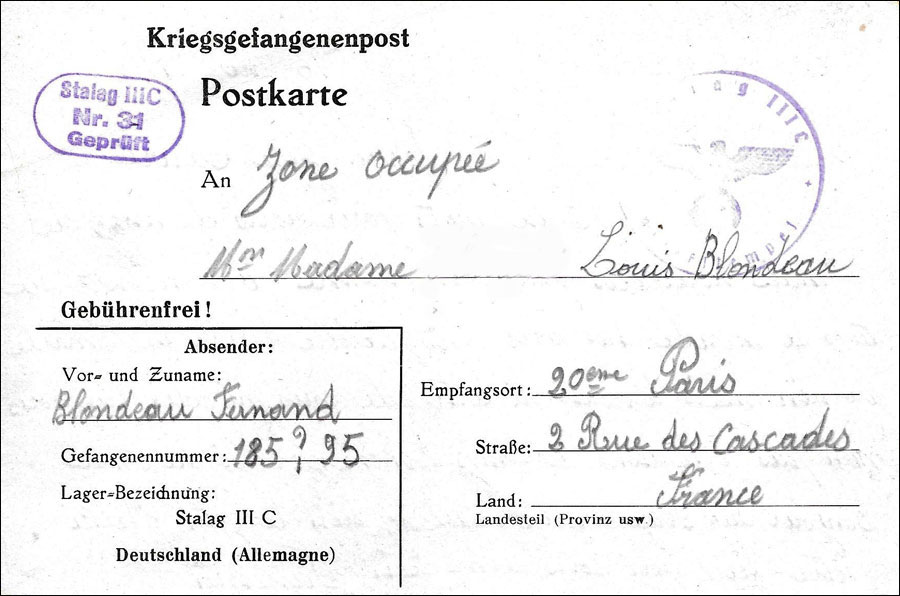 Kriegsgefangenenpost
Stalag IIIC
Nr. 31
Geprüft
Postkarte
III C
An Zone occupée
Mm Madame Louis Blondeau
Gebührenfrei!
Absender:
Vor- und Zuname:
Blondeau Fernand
Gefangenennummer: 185?95
Lager-Bezeichnung:
Stalag III C
Deutschland (Allemagne)
Empfangsort: 20eme Paris
Straße: 2 Rue des Cascades
Land: France
Landesteil (Provinz usw.)